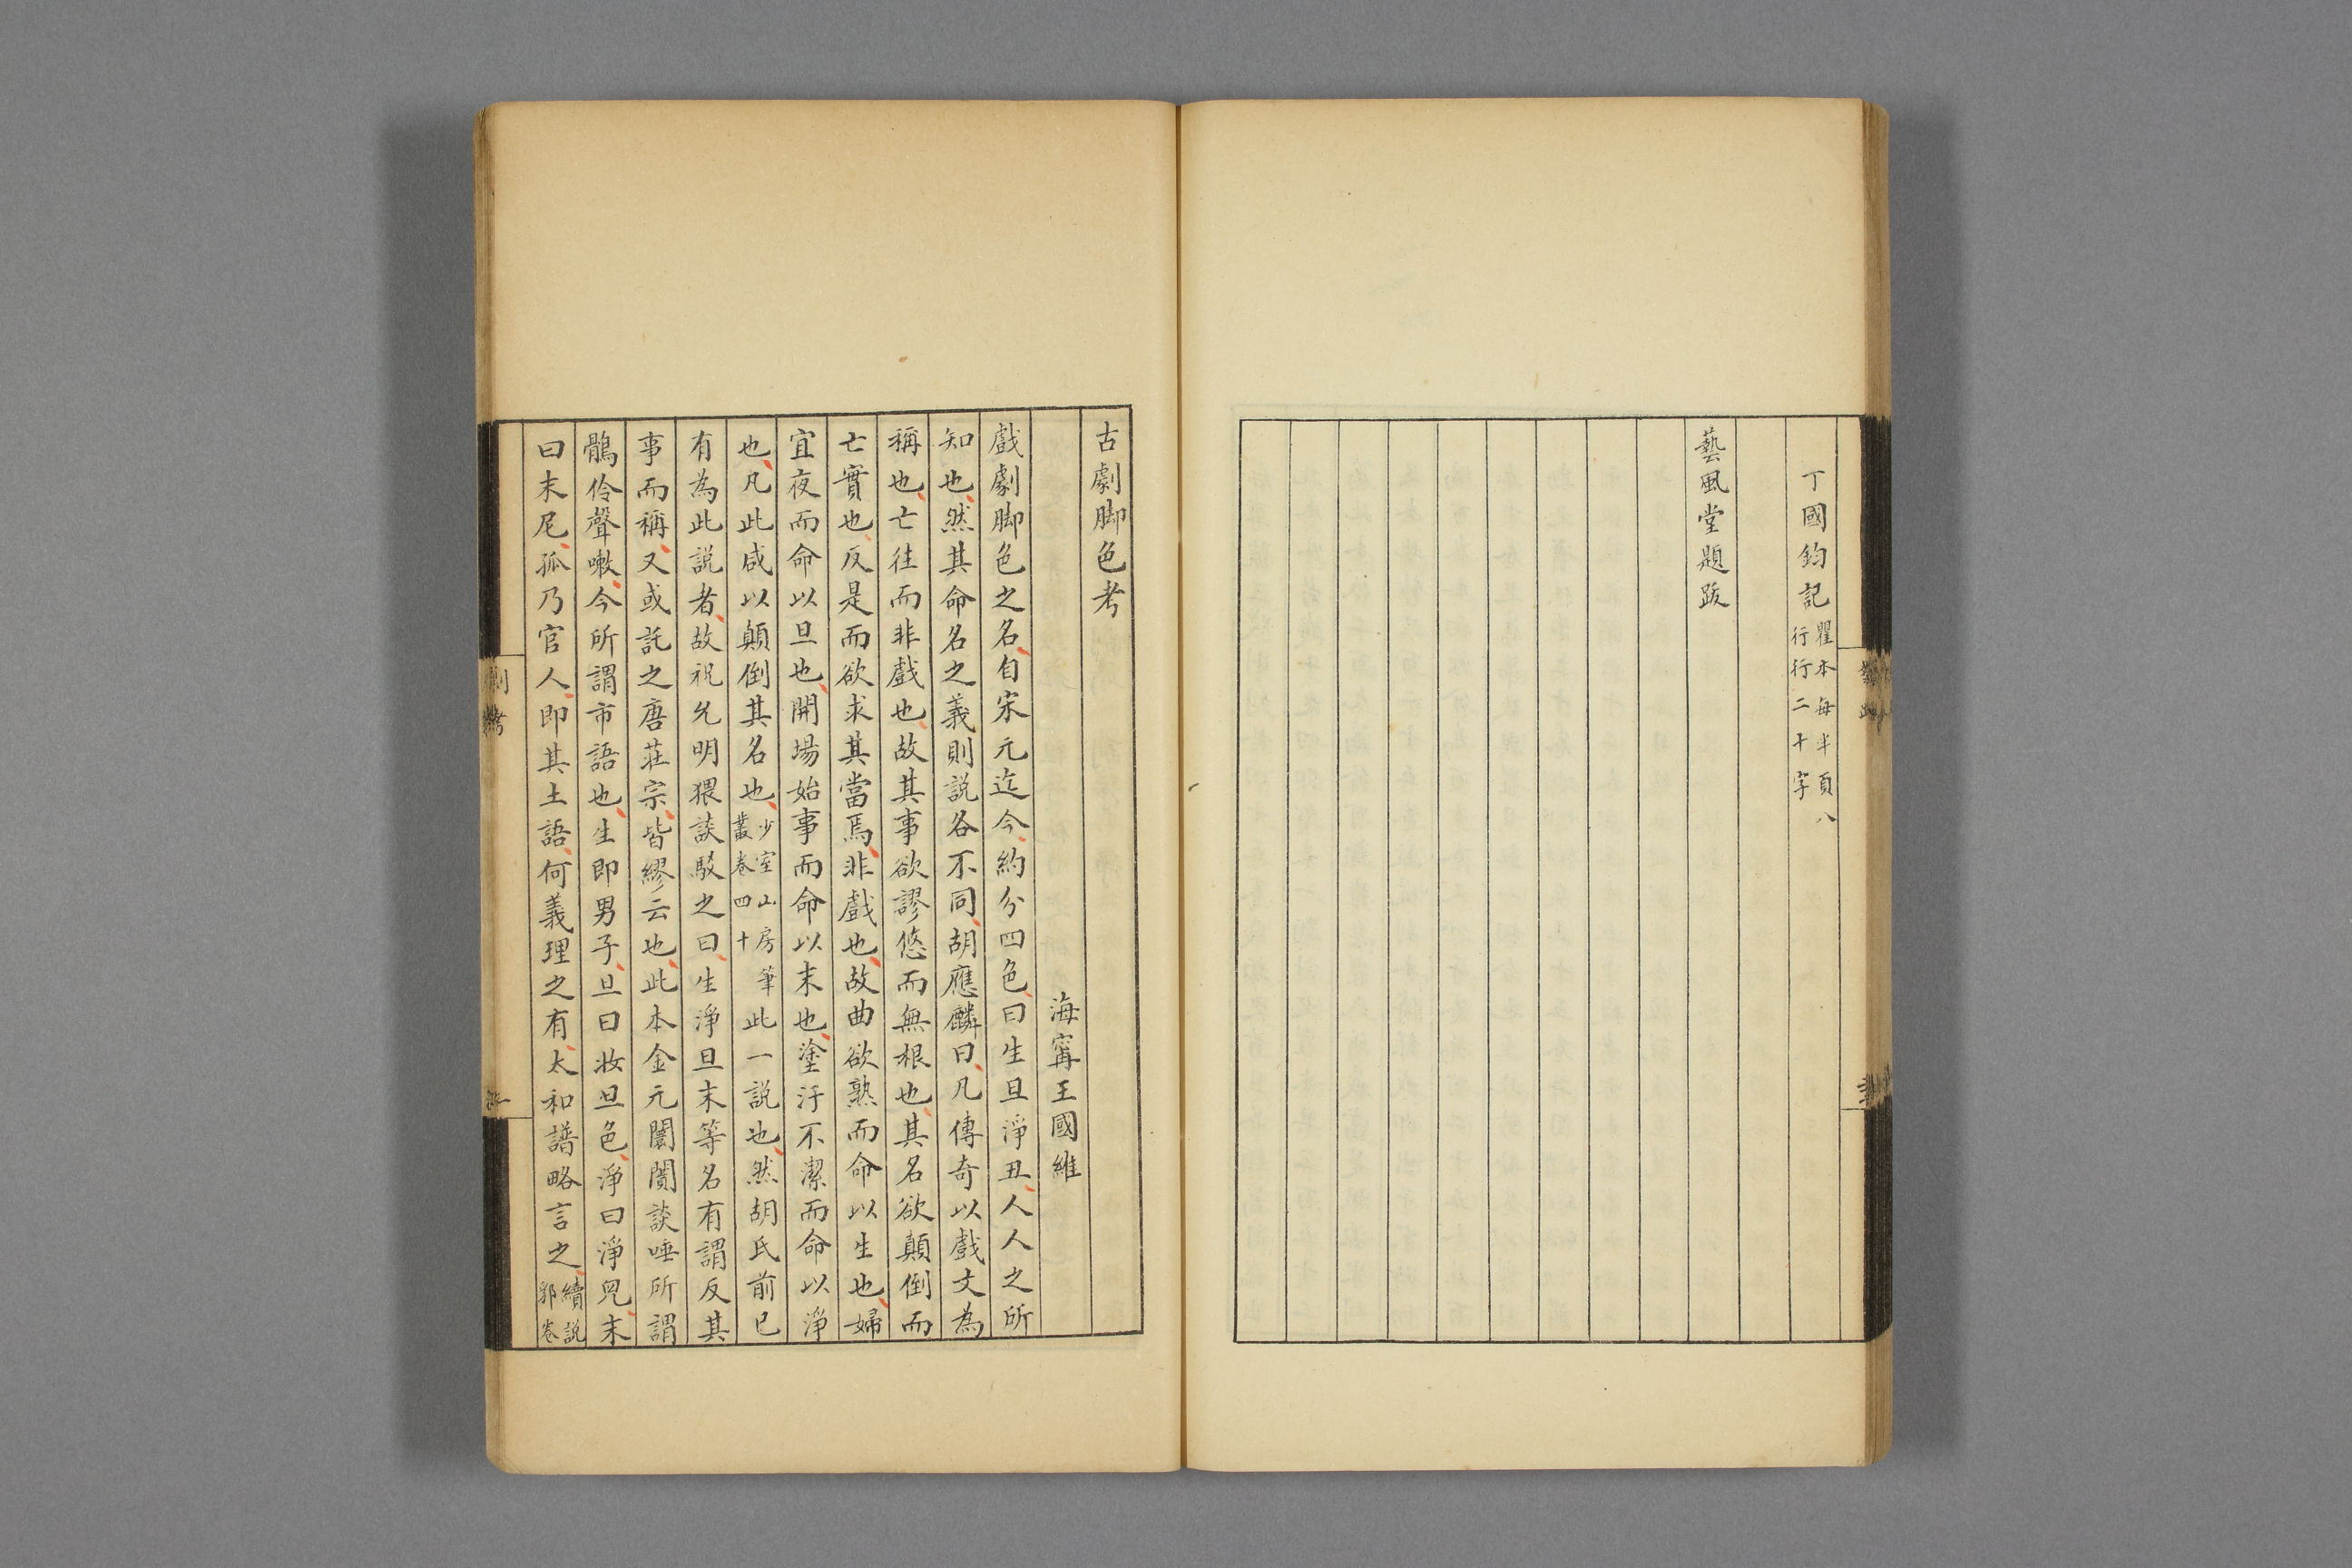 丁國鈞記瞿本每半頁八行行二十字
藝風堂題跋
古劇脚色考
海寧王國維
戲劇脚色之名、自宋元迄今、約分四色、曰生旦淨丑、人人之所
知也、然其命名之義則説各不同、胡應麟曰、凡傳奇以戲文為
稱也、亡往而非戲也、故其事欲謬悠而無根也、其名欲顛倒而
亡實也、反是而欲求其當焉、非戲也、故曲欲熟而命以生也、婦
宜夜而命以旦也、開場始事而命以末也、塗汙不潔而命以淨
也、凡此咸以顛倒其名也、少室山房筆叢卷四十此一説也、然胡氏前已
有為此説者、故祝允明猥談駁之曰、生淨旦末等名有謂反其
事而稱、又或託之唐莊宗、皆繆云也、此本金元闤闠談唾所謂
鶻伶聲嗽、今所謂市語也、生即男子、旦曰妝旦色、淨曰淨兒、末
曰末尼、孤乃官人、即其土語、何義理之有、太和譜略言之、續説郛卷
劇考